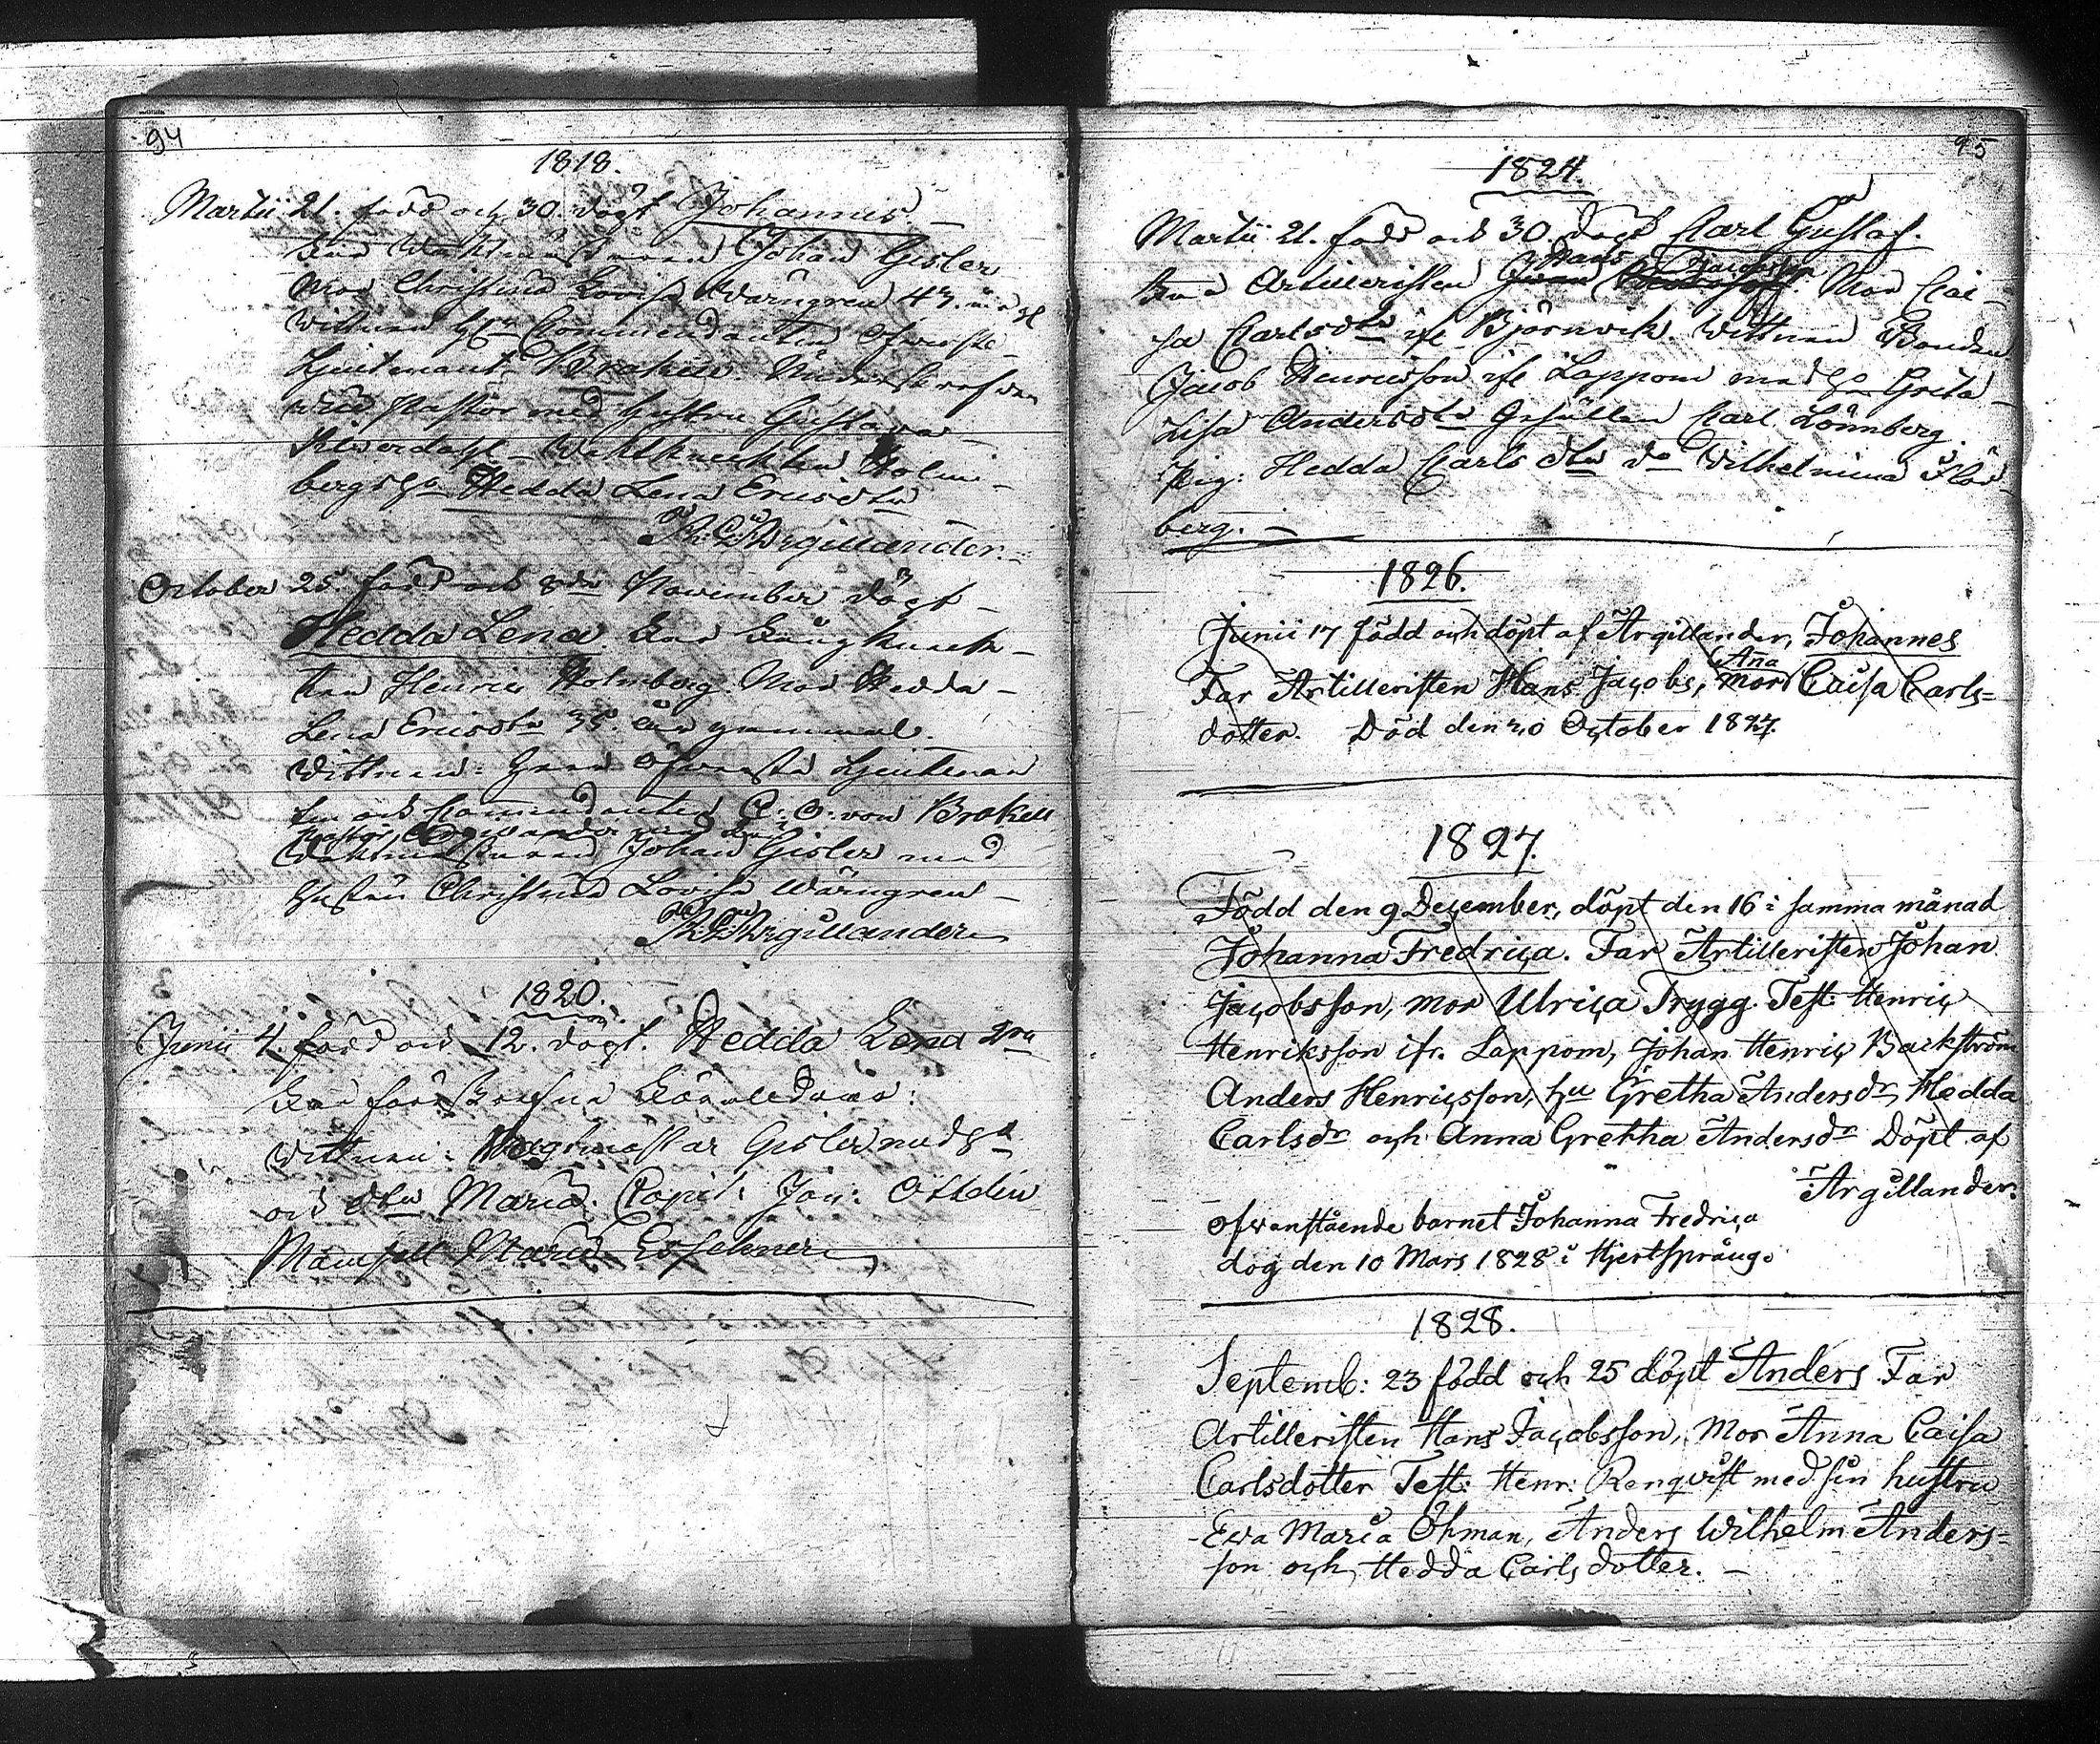 94
1818.
Martii 21. född och 30. döpt Johannes
Far Johan Gisler
Mor Christina Lovisa Wärngren 43. år gl
Wittnen Commendanten Öfverste
Lieutenant Brakell.
Pastor med hustru Gustava
Holm-
bergs Hedda Lena Ericsdtr
Argillander.
October 25. född och 8de November döpt
Hedda Lena. Far Fångknech-
ten Henric Holmberg. Mor Hedda
Lena Ericsdtr 35. år gammal.
Wittnen: Herr Öfversta Lieutenan
ten och Commendanten C: O: von Brakell
Pastor
Johan Gisler med
hustru Christina Lovisa Wärngren
Argillander
1820.
Junii 4. född och 12. döpt. Hedda Lena
Far föräldrar:
Wittnen: Gisler med
och dtr Maria. Capit: Jan:
Mamsell Maria
95
1824.
Martii 21. född och 30. döpt Carl Gustaf.
Hans Jacobsson
Far Artilleristen Mor Cai-
sa Carlsdtr ifr Björnvik. Wittnen Bonden
Jacob Henricsson ifr Lappom med hu Greta
Lisa Andersdtr Gesällen Carl Lönnberg.
Pig: Hedda Carlsdtr do Wilhelmina
berg.
1826.
Junii 17 född och döpt af Argillander, Johannes
Ana
Far Artilleristen Hans Jacobs, Mor Caisa Carls=
dotter. Död den 20 October 1827.
1827.
Född den 9 December, döpt den 16 i samma månad
Johanna Fredrica. Far Artilleristen Johan
Jacobsson, mor Ulrica Trygg. Test: Henric
Henriksson ifr. Lappom, Johan Henric Backström
Anders Henricsson, hu Gretha Andersdr, Hedda
Carlsdr och Anna Gretha Andersdr Döpt af
Argillander.
Ofwanstående barnet Johanna Fredrica
dog den 10 Mars 1828 i Hjertsprång.
1828.
Septemb: 23 född och 25 döpt Anders Far
Artilleristen Hans Jacobsson, Mor Anna Caisa
Carlsdotter Test: Henr: Renqvist med sin hustru
Ewa Maria Öhman, Anders Wilhelm Anders=
son och Hedda Carlsdotter.